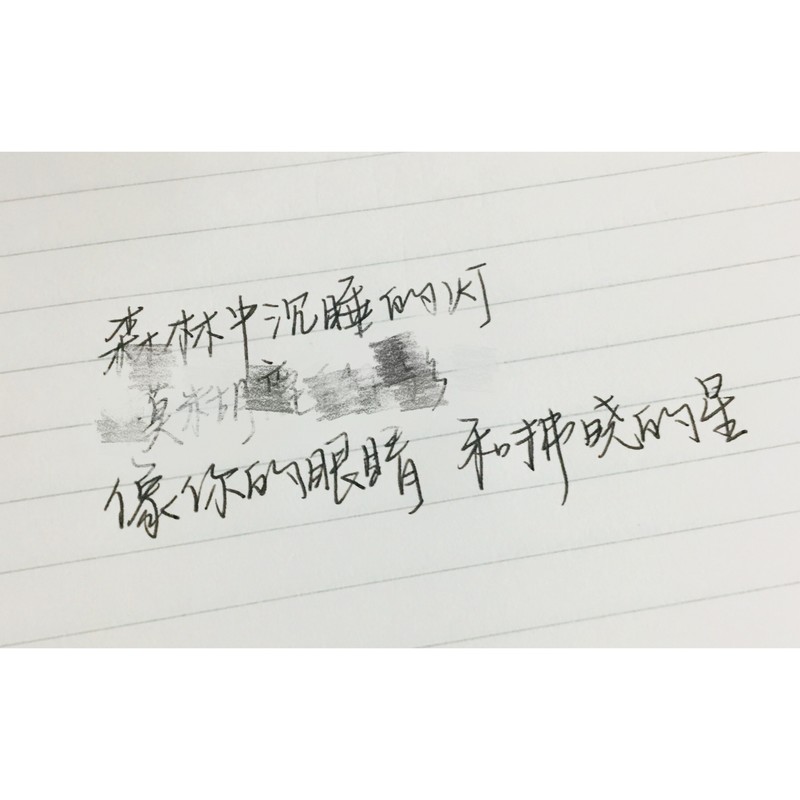 森林中沉睡的灯
莫糊
像你的眼睛 和拂晓的星